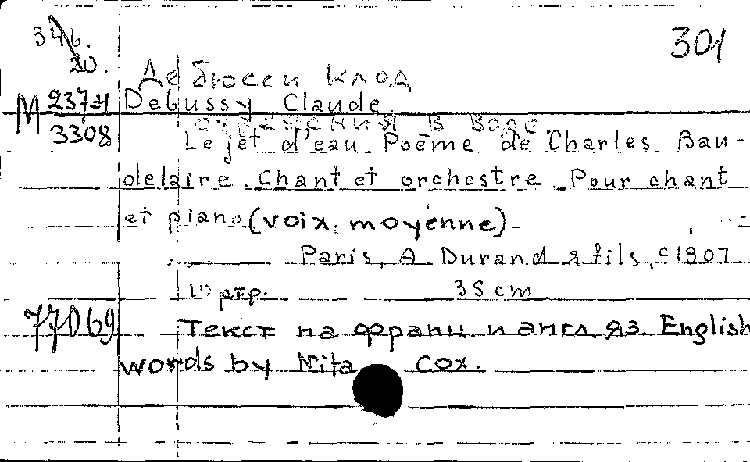 301
346.
20.
Дебюсси Клод
M 237н Debussy Claude
3308
Le jet d'eau. Poème de Charles Bau-
delaire. Chant et orchestre. Pour chant
et piano (voix moyenne).
Paris, A. Durand & fils, c1907
35 cm
77069 Текст на франц и англ яз. English
words by Nita Cox.